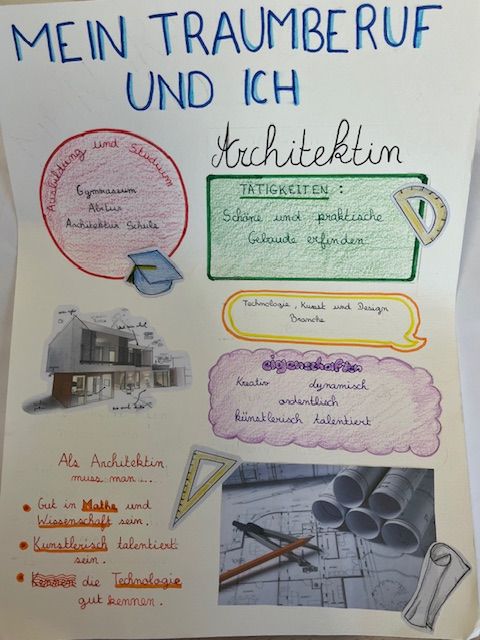 MEIN TRAUMBERUF
UND ICH
Ausbildung und Studium
Gymnasium
Abitur
Architektur Schule
Architektin
TÄTIGKEITEN :
Schöne und praktische
Gebäude erfinden.
Technologie, Kunst und Design
Branche
eigenschaften
Kreativ dynamisch
ordentlich
künstlerisch talentiert
Als Architektin
muss man...
Gut in Mathe und
Wissenschaft sein.
Künstlerisch talentiert
sein.
Kennen die Technologie
gut kennen.